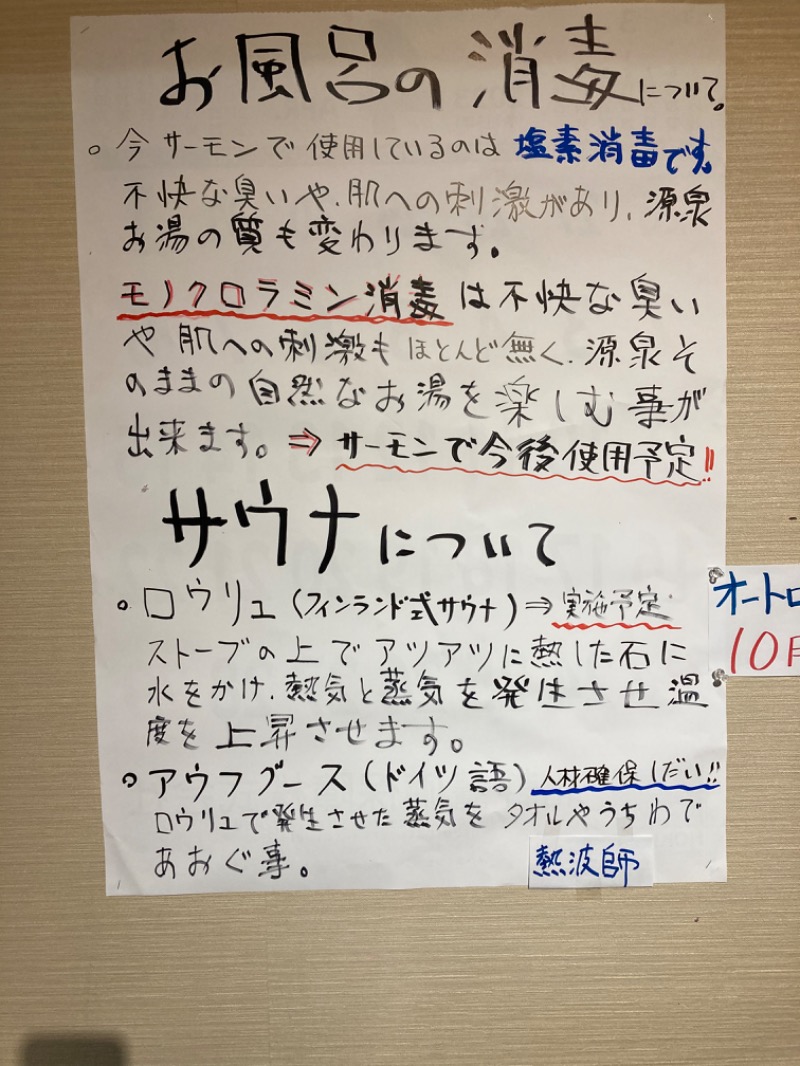 お風呂の消毒について。
○ 今サーモンで使用しているのは 塩素消毒です。
不快な臭いや、肌への刺激があり、源泉
お湯の質も変わります。
モノクロラミン消毒は不快な臭い
や肌への刺激もほとんど無く、源泉そ
のままの自然なお湯を楽しむ事が
出来ます。⇒サーモンで今後使用予定!!
サウナについて
○ ロウリュ(フィンランド式サウナ)⇒実施予定
ストーブの上でアツアツに熱した石に
水をかけ、熱気と蒸気を発生させ温
度を上昇させます。
○ アウフグース(ドイツ語) 人材確保しだい!!
ロウリュで発生させた蒸気をタオルやうちわで
あおぐ事。
熱波師
オートロ
10